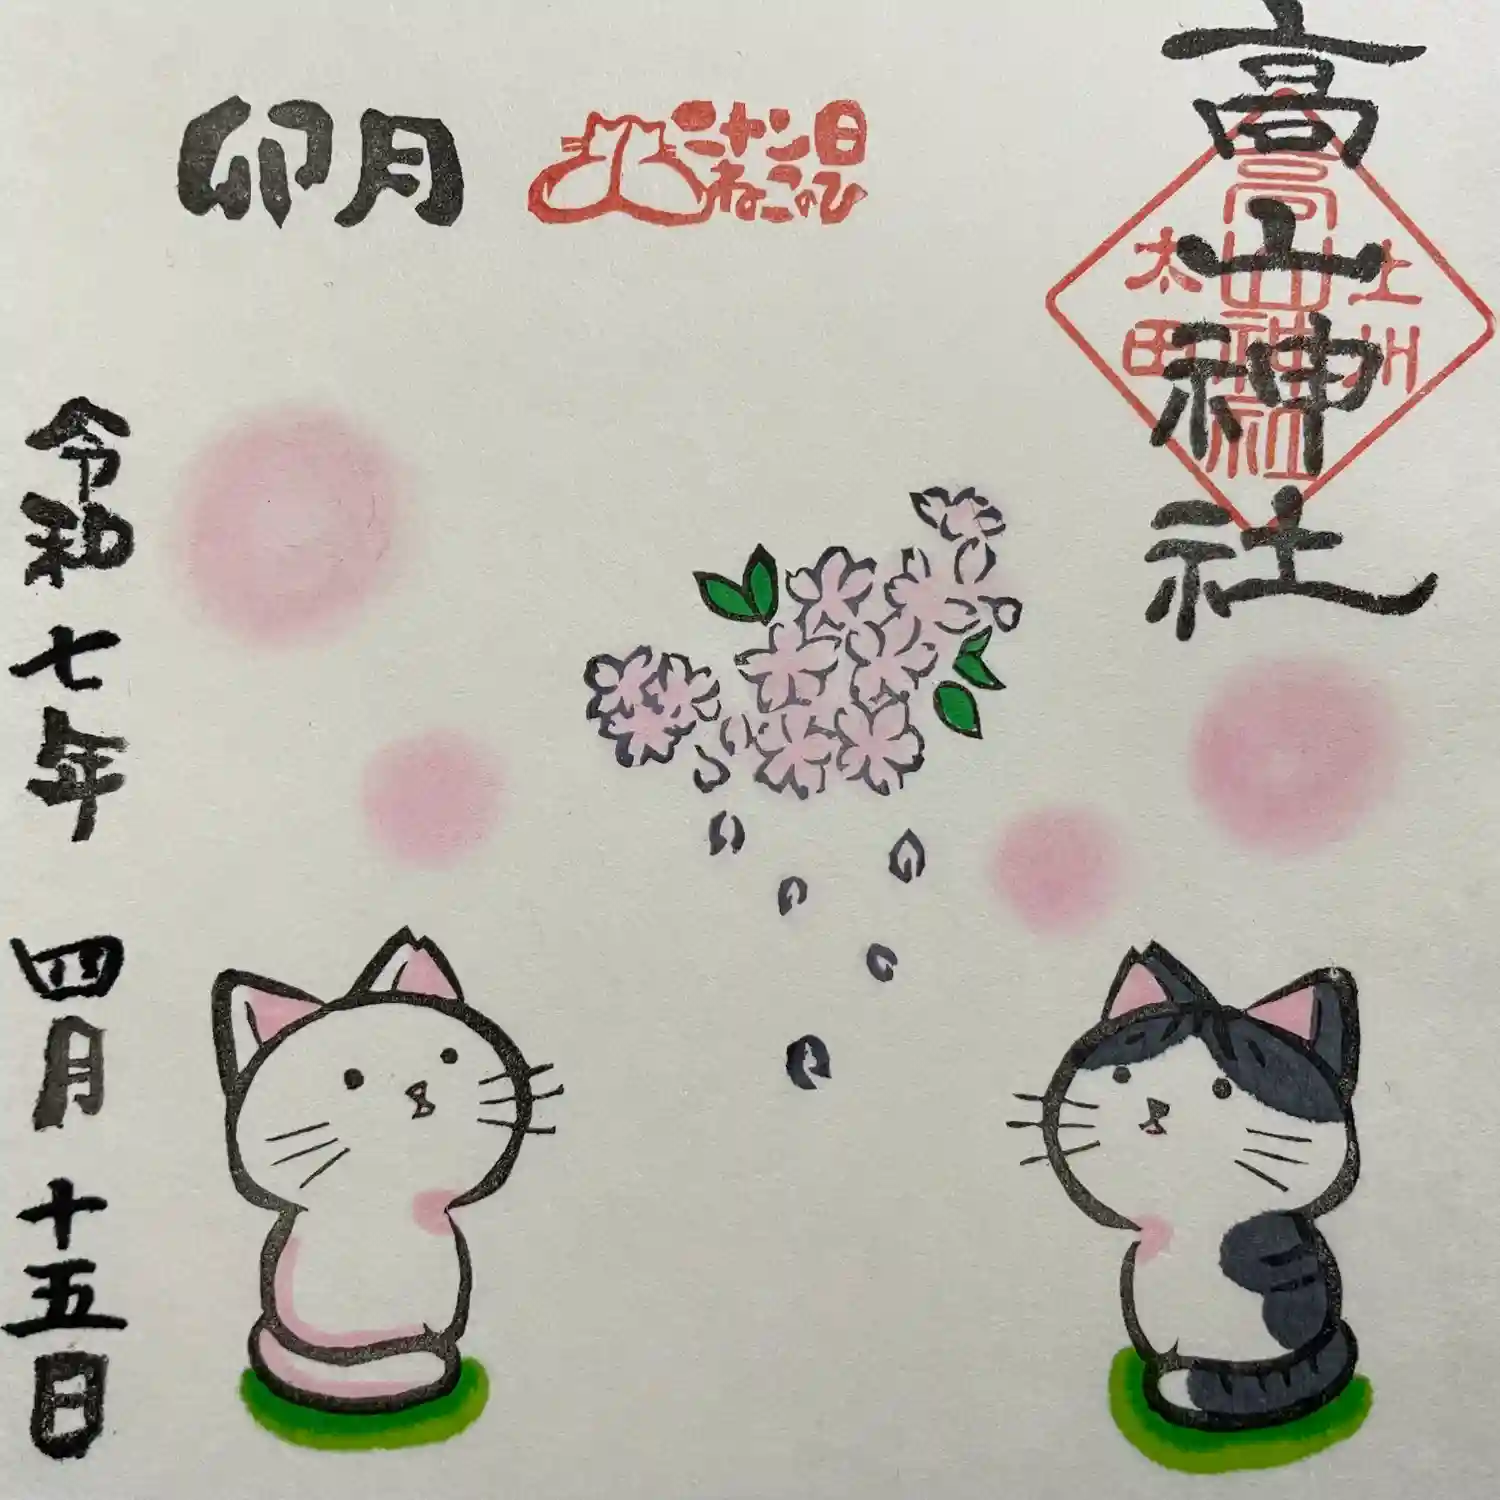 高山神社
上州
高山神社
太田
二十二日
ねこのひ
卯月
令和七年 四月 十五日